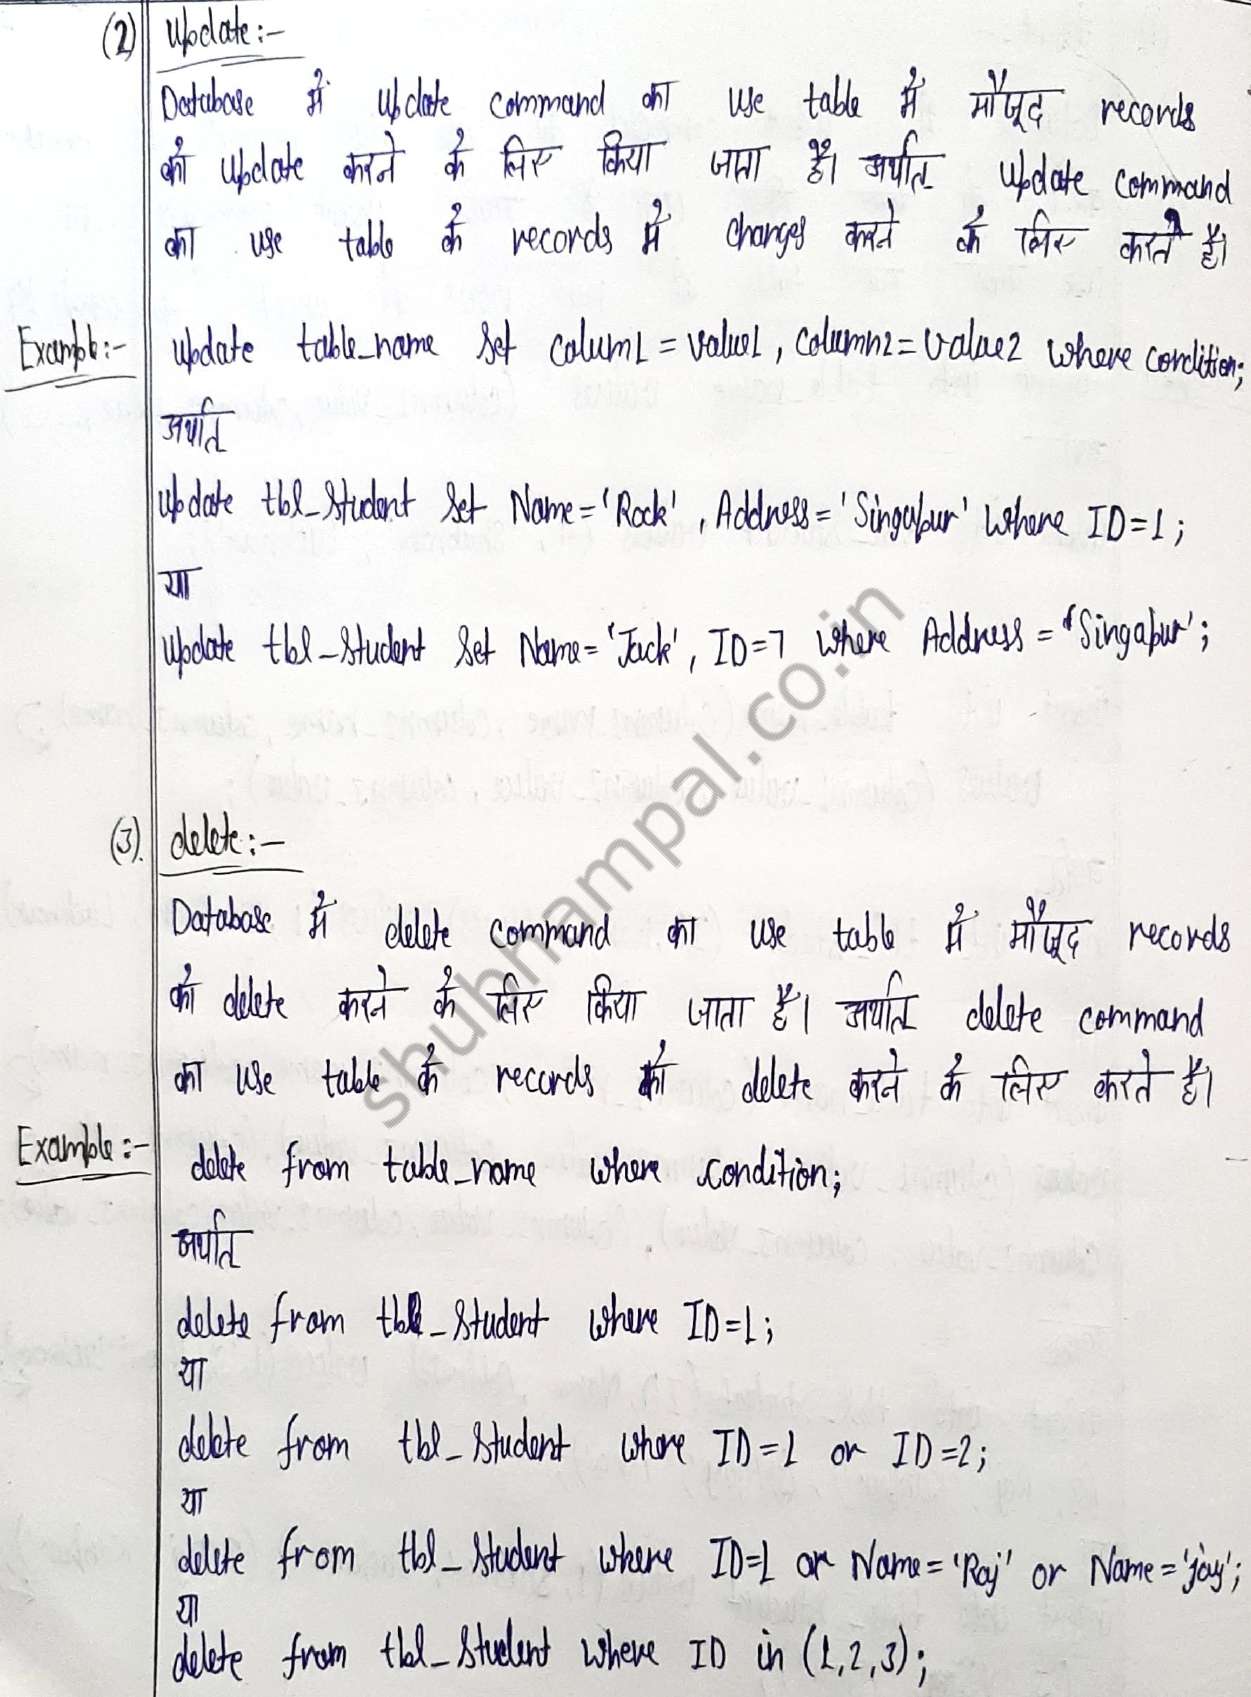 (2) Update :-
Database में Update command का use table में मौजूद records
को update करने के लिए किया जाता है। अर्थात update command
का use table के records में changes करने के लिए करते है।
Example :- update table_name set colum1 = value1, column2 = value2 where condition;
अर्थात
update tbl_student set Name = 'Rock', Address = 'Singapur' where ID = 1;
या
update tbl_student set Name = 'Jack', ID = 7 where Address = 'Singapur';
(3). delete :-
Database में delete command का use table में मौजूद records
को delete करने के लिए किया जाता है। अर्थात delete command
का use table के records को delete करने के लिए करते है।
Example :- delete from table_name where condition;
अर्थात
delete from tbl_student where ID = 1;
या
delete from tbl_student where ID = 1 or ID = 2;
या
delete from tbl_student where ID = 1 or Name = 'Raj' or Name = 'jay';
या
delete from tbl_student where ID in (1,2,3);
shubhampal.co.in